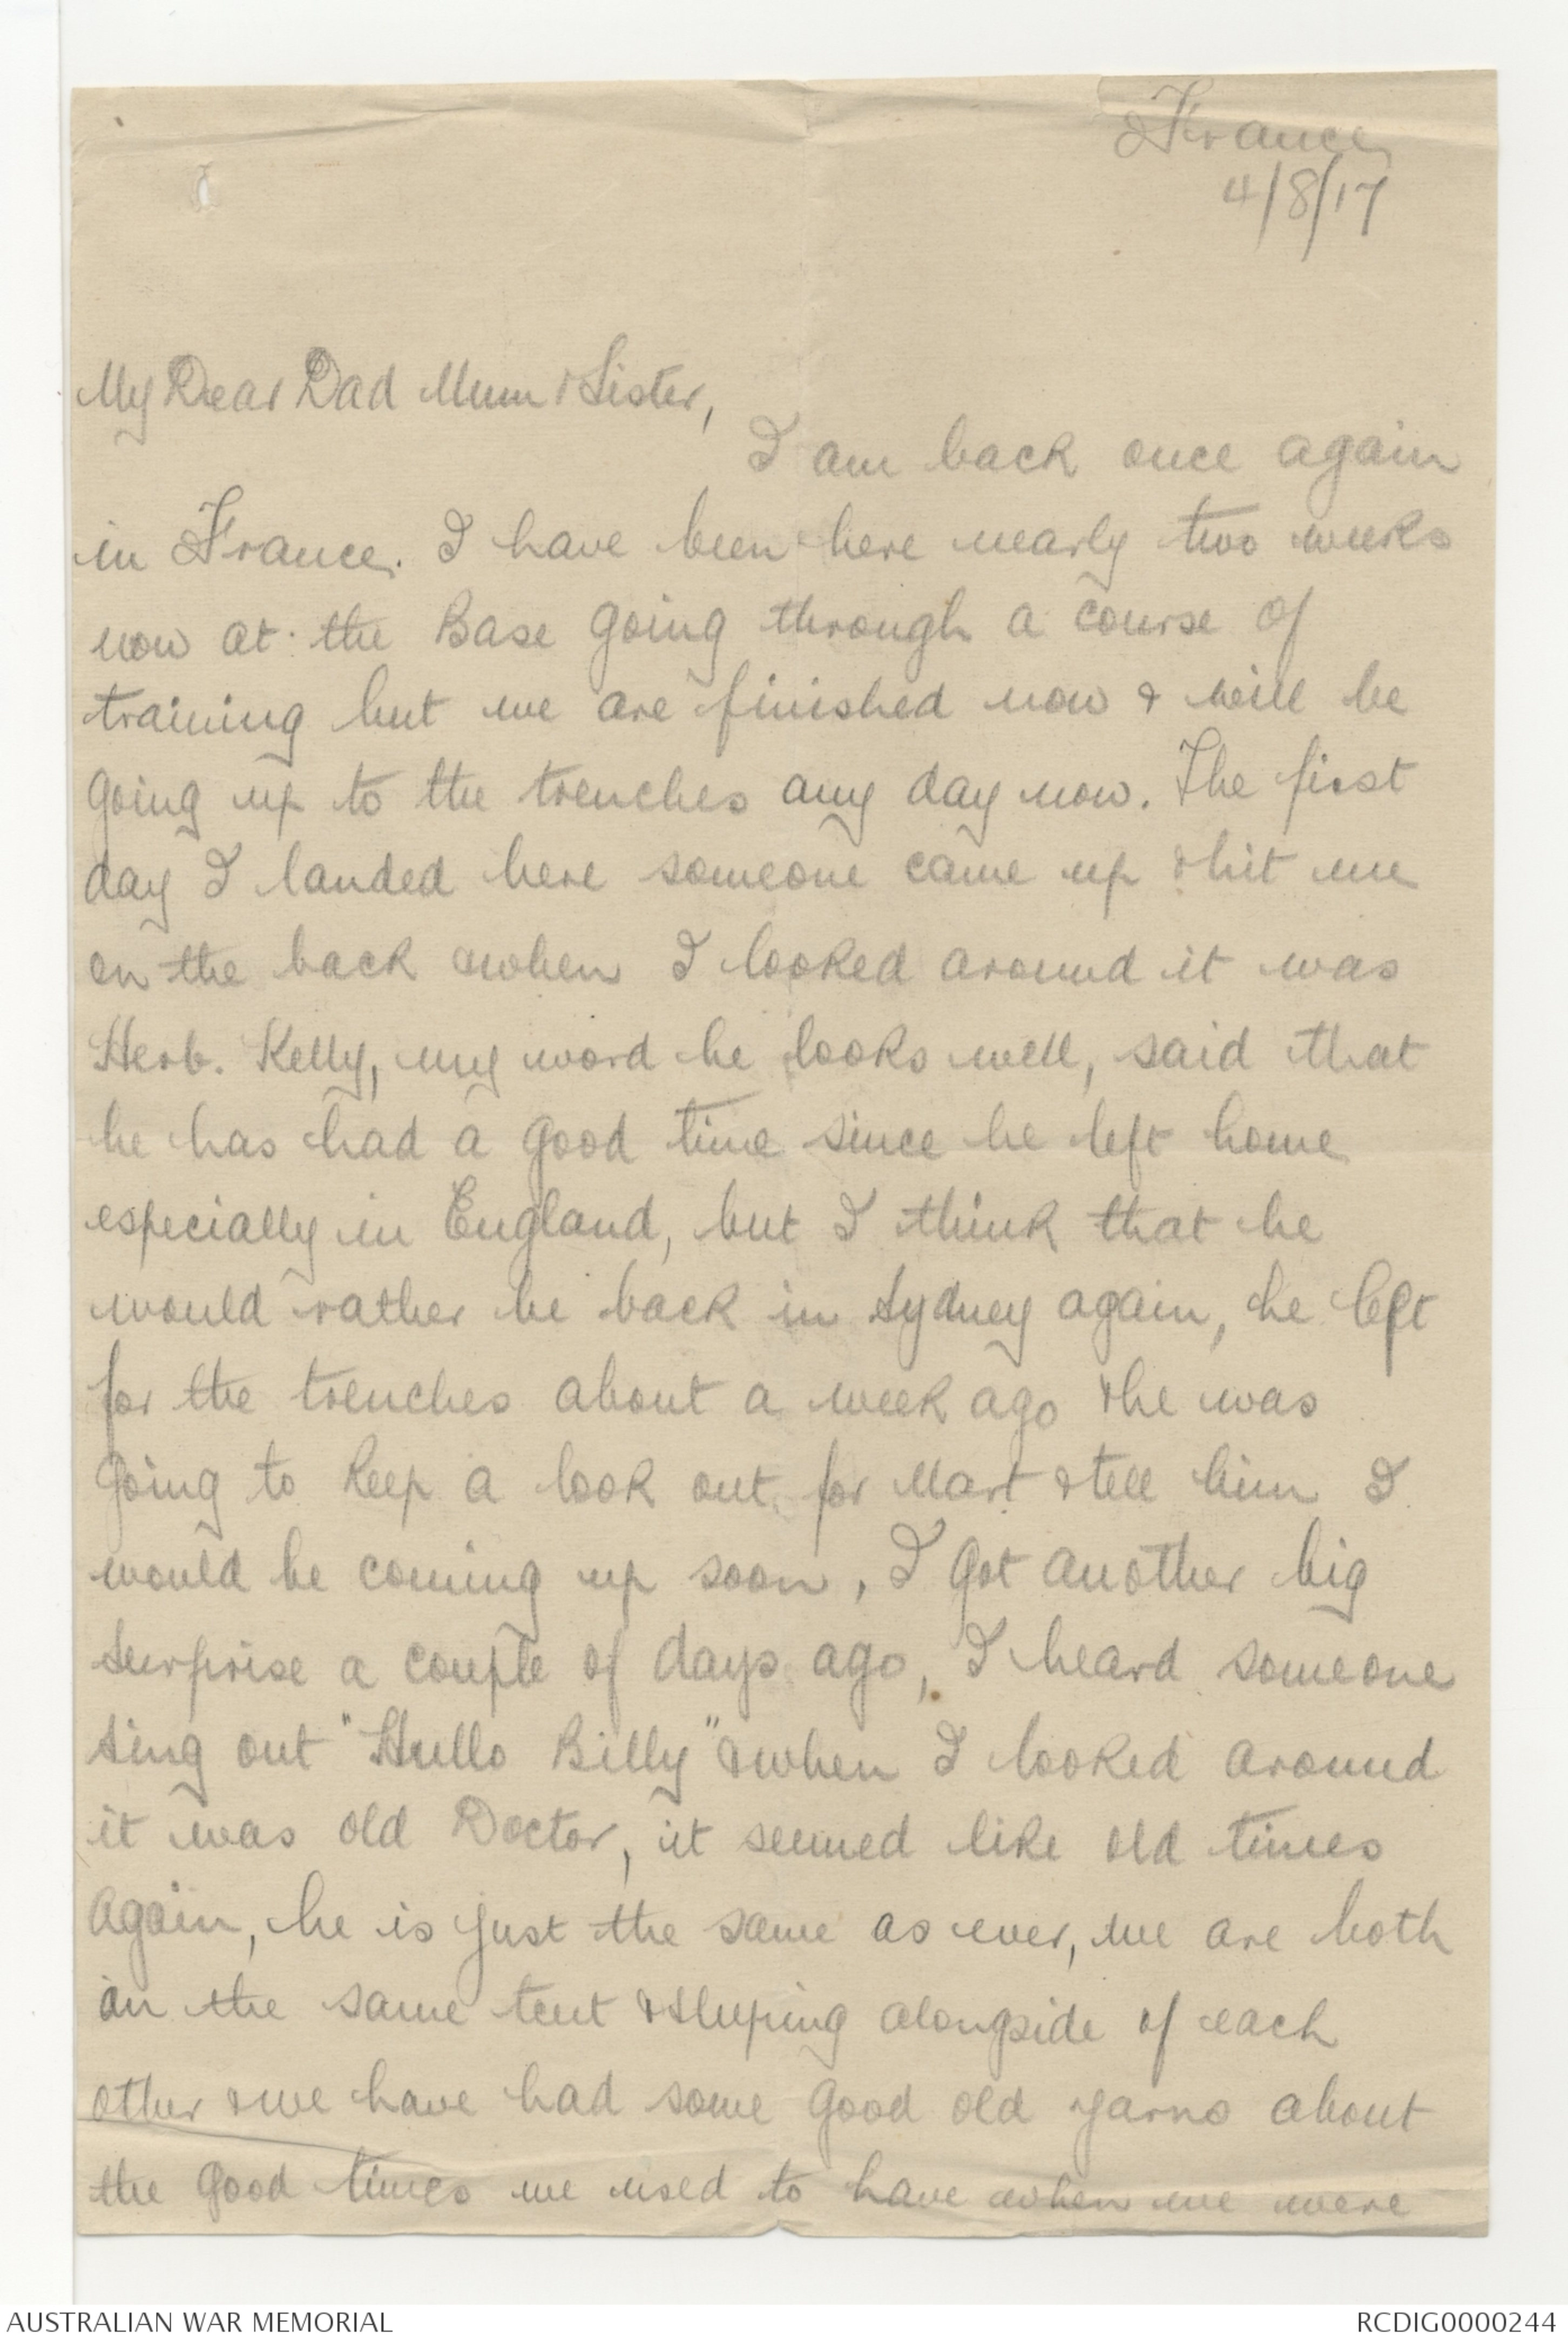 France
4/8/17
My Dear Dad Mum & Sister,
I am back once again
in France. I have been here nearly two weeks
now at the Base going through a course of
training but we are finished now & will be
going up to the trenches any day now. The first
day I landed here someone came up & hit me
on the back & when I looked around it was
Herb. Kelly, my word he looks well, said that
he has had a good time since he left home
especially in England, but I think that he
would rather be back in Sydney again, he left
for the trenches about a week ago & he was
going to keep a look out for Mart & tell him I
would be coming up soon, I got another big
surprise a couple of days ago, I heard someone
sing out "Hullo Billy" & when I looked around
it was old Doctor, it seemed like old times
again, he is just the same as ever, we are both
in the same tent & sleeping alongside of each
other & we have had some good old yarns about
the good times we used to have when we were
AUSTRALIAN WAR MEMORIAL
RCDIG0000244